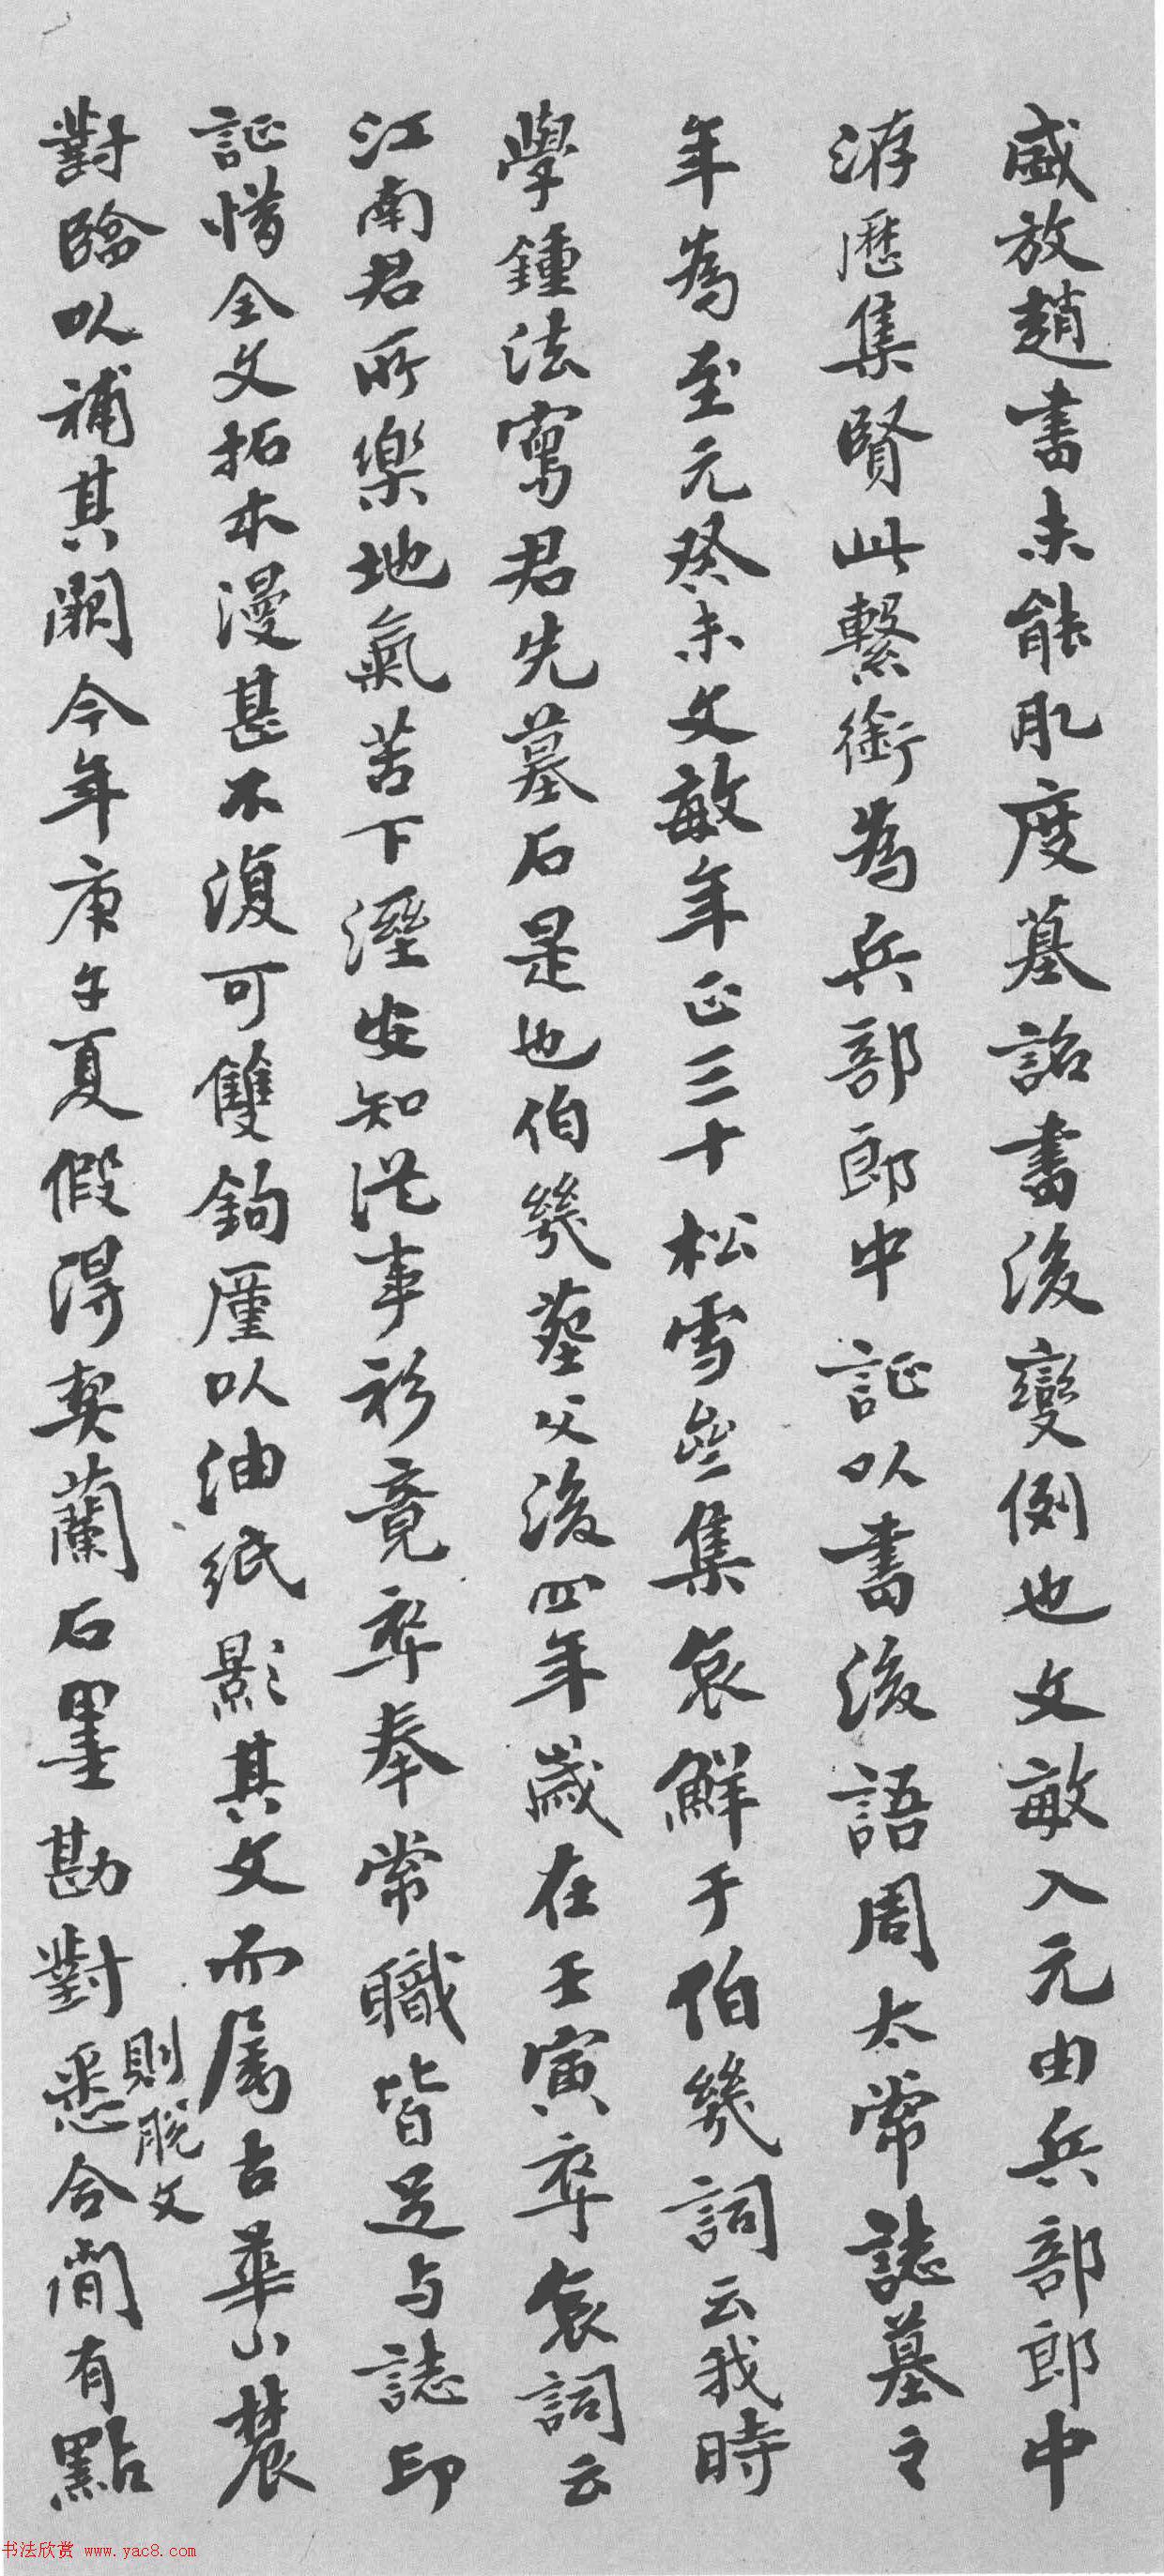 盛放趙書未能肊度墓誩書後變例也文敏入元由兵部郎中
洊歷集賢此繫銜為兵部郎中証以書後語周太常誌墓之
年為至元癸未文敏年正三十松雪亝集哀鮮于伯幾詞云我時
學鍾法寫君先墓石是也伯幾葬父後四年歲在壬寅卒哀詞云
江南君所樂地氣苦下溼安知從事衫竟卒奉常職皆足与誌印
証惜全文拓本漫甚不復可雙鉤廑以油紙影其文而属古華山農
對臨以補其闕今年庚午夏假得契蘭石墨勘對悉合間有點
則脫文
书法欣赏 www.yac8.com